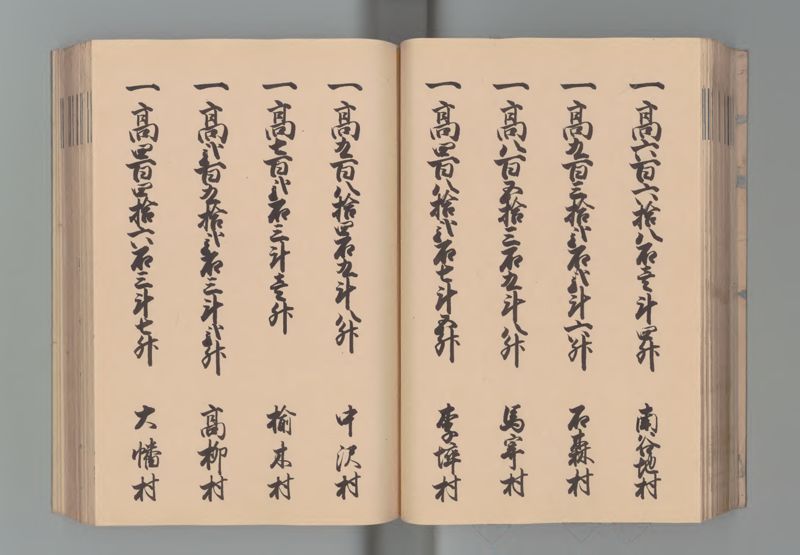 一高六百六拾八石壱斗四升 南谷地村
一高九百三拾弐石弐斗六升 石森村
一高八百五拾三石九斗八升 馬寄村
一高四百八拾弐石七斗五升 李埣村
一高九百八拾四石九斗八升 中沢村
一高七百弐石三斗壱升 楡木村
一高弐百九拾弐石三斗弐升 高柳村
一高四百四拾六石三斗七升 大幡村